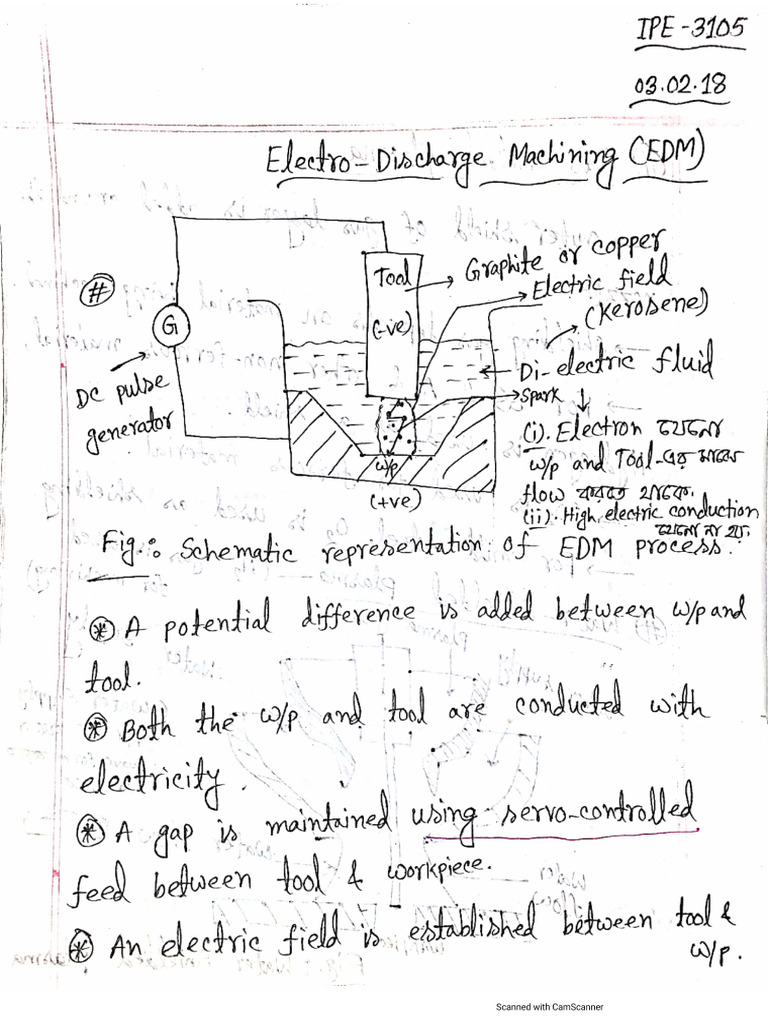 IPE-3105
03.02.18
Electro-Discharge Machining (EDM)
#
G
DC pulse
generator
Tool
(-ve)
w/p
(+ve)
Graphite or copper
Electric field
(Kerosene)
Di-electric fluid
Spark
(i). Electron যেনো
w/p and Tool-এর মাঝে
flow করতে থাকে.
(ii). High electric conduction
যেনো না হয়.
Fig.: Schematic representation of EDM process.
* A potential difference is added between w/p and
tool.
* Both the w/p and tool are conducted with
electricity.
* A gap is maintained using servo-controlled
feed between tool & workpiece.
* An electric field is established between tool &
w/p.
Scanned with CamScanner